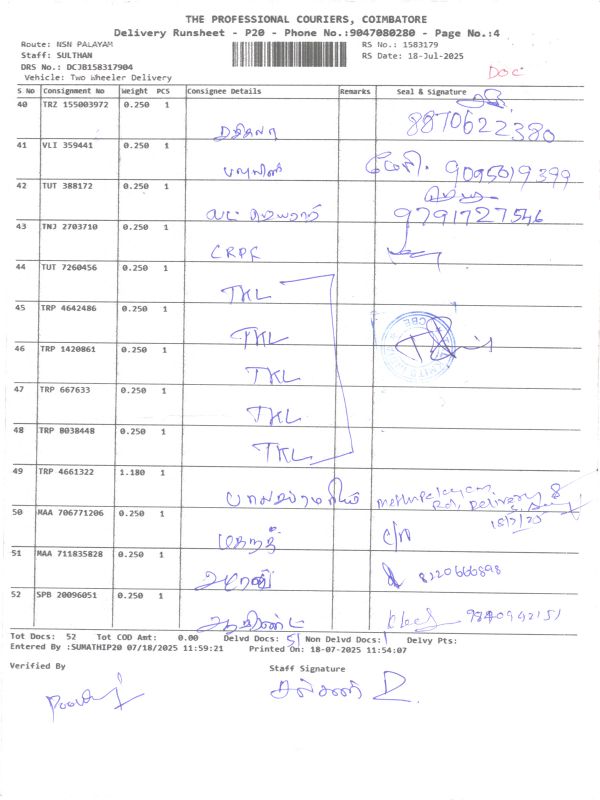 THE PROFESSIONAL COURIERS, COIMBATORE
Delivery Runsheet - P20 - Phone No.:9047080280 - Page No.:4
Route: NSN PALAYAM RS No.: 1583179
Staff: SULTHAN RS Date: 18-Jul-2025
DRS No.: DCJB158317904
DOC
Vehicle: Two Wheeler Delivery
S No Consignment No Weight PCS Consignee Details Remarks Seal & Signature
40 TRZ 155003972 0.250 1
8870622380
41 VLI 359441 0.250 1
9095019399
42 TUT 388172 0.250 1
9791727546
43 TNJ 2703710 0.250 1
CRPF
44 TUT 7260456 0.250 1
TKL
45 TRP 4642486 0.250 1
TKL
46 TRP 1420861 0.250 1
TKL
47 TRP 667633 0.250 1
TKL
48 TRP 8038448 0.250 1
TKL
49 TRP 4661322 1.180 1
Delivery
18/7/25
50 MAA 706771206 0.250 1
c/n
51 MAA 711835828 0.250 1
8220666898
52 SPB 20096051 0.250 1
9840942151
Tot Docs: 52 Tot COD Amt: 0.00 Delvd Docs: 51 Non Delvd Docs: 1 Delvy Pts:
Entered By :SUMATHIP20 07/18/2025 11:59:21 Printed On: 18-07-2025 11:54:07
Verified By Staff Signature